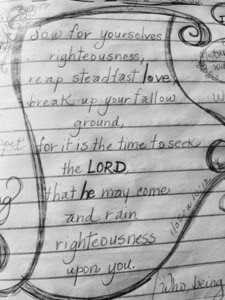 Sow for yourselves
righteousness,
reap steadfast love,
break up your fallow
ground,
for it is the time to seek
the LORD,
that he may come
and rain
righteousness
upon you.
HOSEA 10:12
who, being